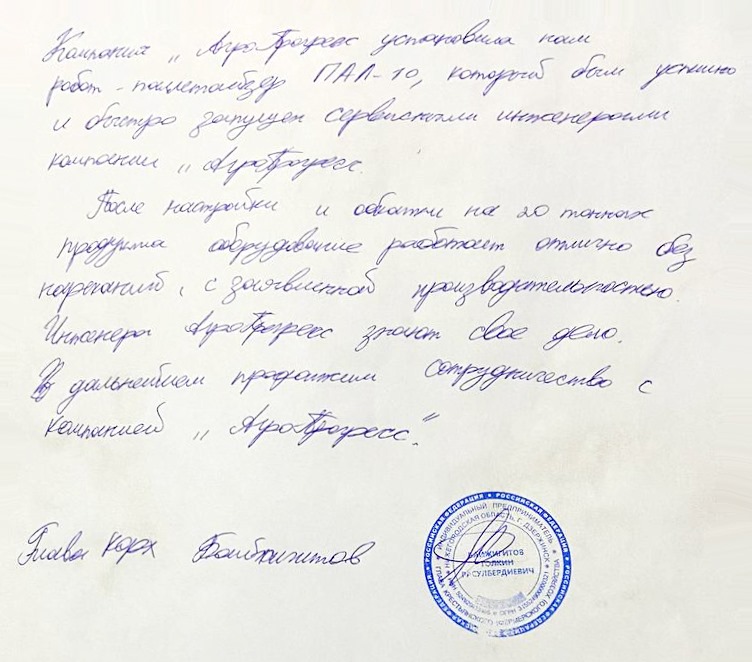 Компания „АгроПрогресс установила нам
робот-паллетайзер ПАЛ-10, который был успешно
и быстро запущен сервисными инженерами
компании „АгроПрогресс.
После настройки и обкатки на 20 тоннах
продукта оборудование работает отлично без
нареканий, с заявленной производительностью.
Инженера АгроПрогресс знают свое дело.
В дальнейшем продолжим сотрудничество с
компанией „АгроПрогресс".
Глава КФХ Байжигитов
РОССИЙСКАЯ ФЕДЕРАЦИЯ * РОССИЙСКАЯ ФЕДЕРАЦИЯ
ИНДИВИДУАЛЬНЫЙ ПРЕДПРИНИМАТЕЛЬ
НИЖЕГОРОДСКАЯ ОБЛАСТЬ, Г. ДЗЕРЖИНСК
БАЙЖИГИТОВ
ТОЛКИН
РАСУЛБЕРДИЕВИЧ
ГЛАВА КРЕСТЬЯНСКОГО (ФЕРМЕРСКОГО) ХОЗЯЙСТВА